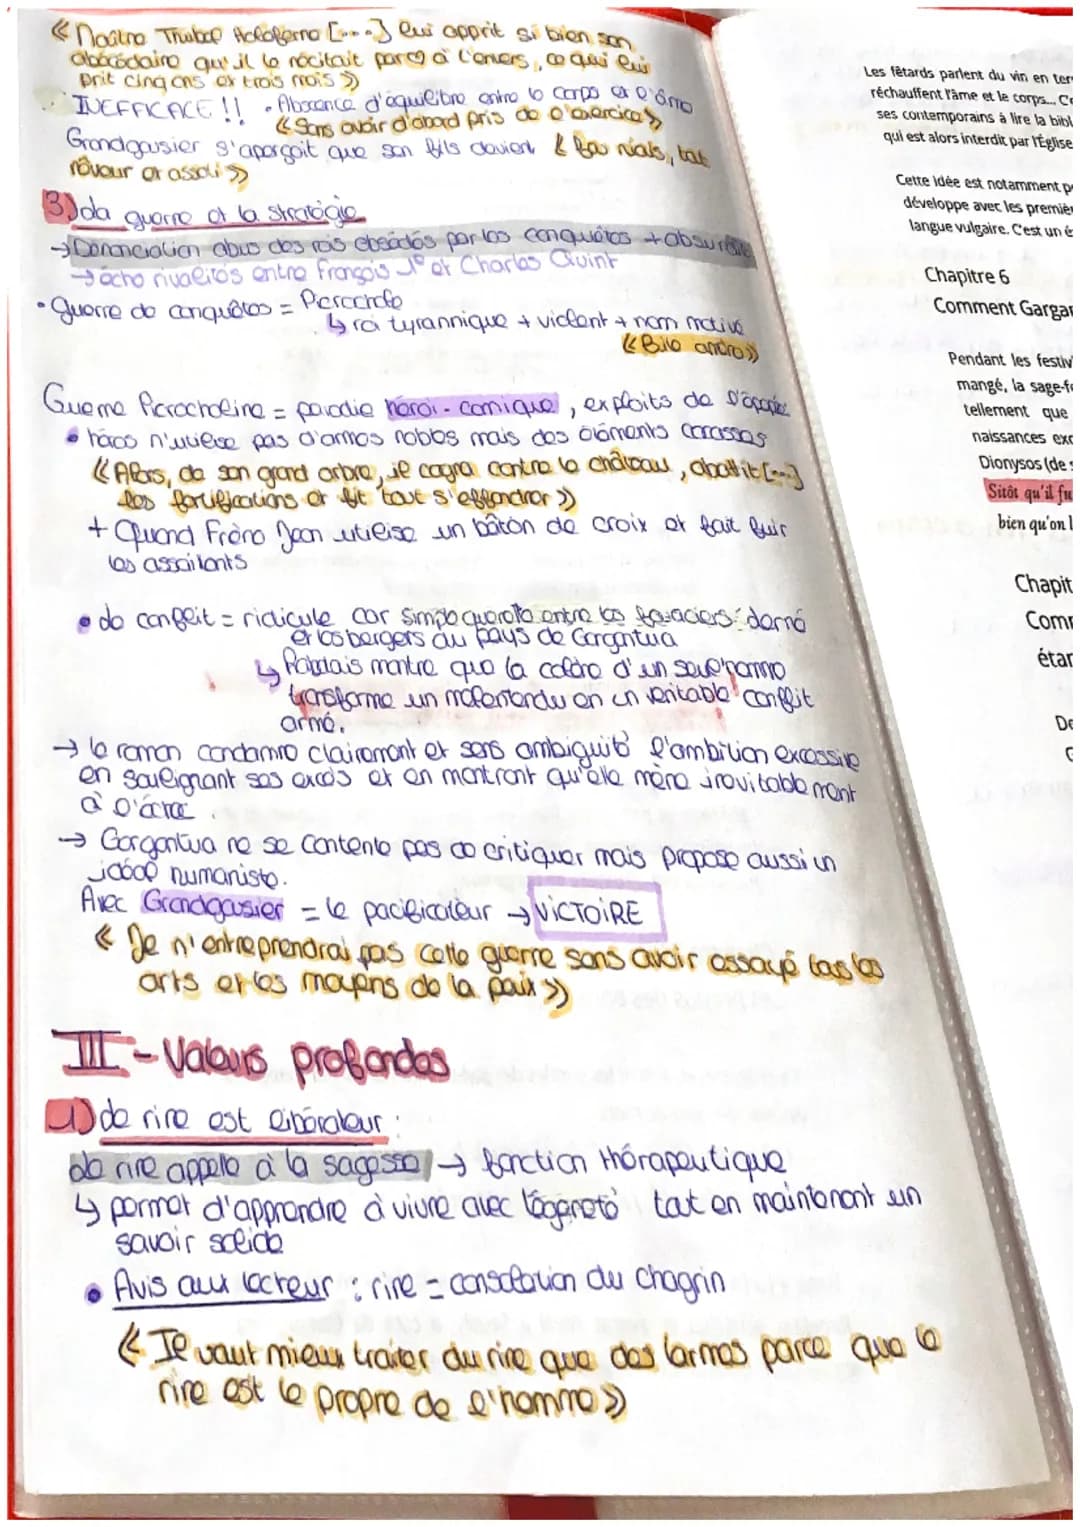 « Maître Thubal Holoferne [...] lui apprit si bien son
abécédaire qu'il le récitait par ♡ à l'envers, ce qui lui
prit cinq ans et trois mois »
INEFFICACE !! • Absence d'équilibre entre le corps et l'âme
« Sans avoir d'abord pris de l'exercice »
Grandgousier s'aperçoit que son fils devient « fou niais, tout
rêveur et assoti »
3) La guerre et la stratégie
→ Dénonciation abus des rois obsédés par les conquêtes + absurdité
→ écho rivalités entre François Iº et Charles Quint
• Guerre de conquêtes = Picrochole
↳ roi tyrannique + violent + nom motivé
« Bile amère »
Guerre Picrocholine = parodie héroï-comique, exploits de l'épopée
• héros n'utilise pas d'armes nobles mais des éléments
« Alors, de son grand arbre, il cogna contre le château, abattit [...]
les fortifications et fit tout s'effondrer »
+ Quand Frère Jean utilise un bâton de croix et fait fuir
les assaillants
• Le conflit = ridicule car simple querelle entre les fouaciers de Lerné
et les bergers du pays de Gargantua
↳ Rabelais montre que la colère d'un seul homme
transforme un malentendu en un véritable conflit
armé.
→ le roman condamne clairement et sans ambiguité l'ambition excessive
en soulignant ses excès et en montrant qu'elle mène inévitablement
à l'échec.
→ Gargantua ne se contente pas de critiquer mais propose aussi un
idéal humaniste.
Avec Grandgousier = le pacificateur → VICTOIRE
« Je n'entreprendrai pas cette guerre sans avoir essayé tous les
arts et les moyens de la paix »
III - Valeurs profondes
1) Le rire est libérateur :
Le rire appelle à la sagesse → fonction thérapeutique
↳ permet d'apprendre à vivre avec légèreté tout en maintenant un
savoir solide
• Avis aux lecteur : rire = consolation du chagrin
« Il vaut mieux traiter du rire que des larmes parce que le
rire est le propre de l'homme »
Les fêtards parlent du vin en ter
réchauffent l'âme et le corps... C
ses contemporains à lire la bibl
qui est alors interdit par l'Église
Cette idée est notamment p
développe avec les premiè
langue vulgaire. C'est un é
Chapitre 6
Comment Gargan
Pendant les festiv
mangé, la sage-f
tellement que
naissances exc
Dionysos (de
Sitôt qu'il fu
bien qu'on l
Chapit
Comm
étan
De